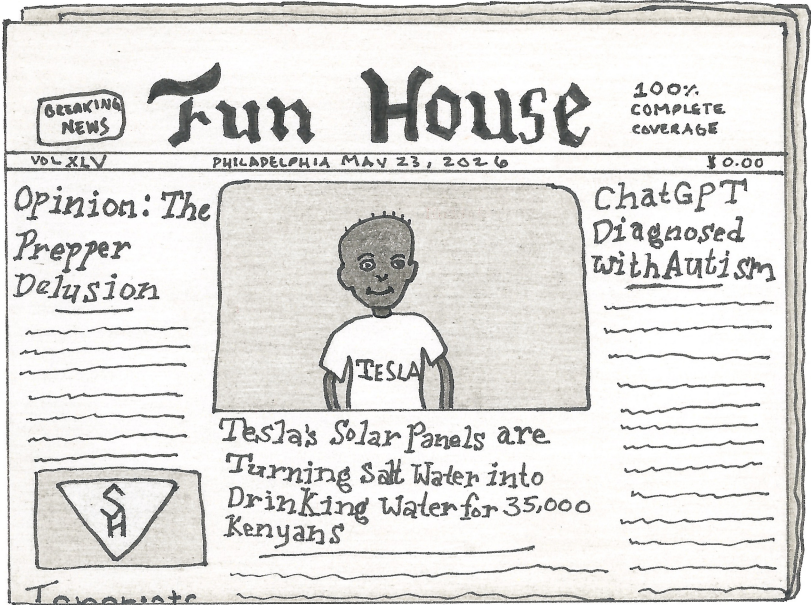 BREAKING
NEWS
Fun House
100%
COMPLETE
COVERAGE
VOL XLV
PHILADELPHIA MAY 23, 2026
$0.00
Opinion: The
Prepper
Delusion
SH
TESLA
Tesla's Solar Panels are
Turning Salt Water into
Drinking Water for 35,000
Kenyans
ChatGPT
Diagnosed
with Autism